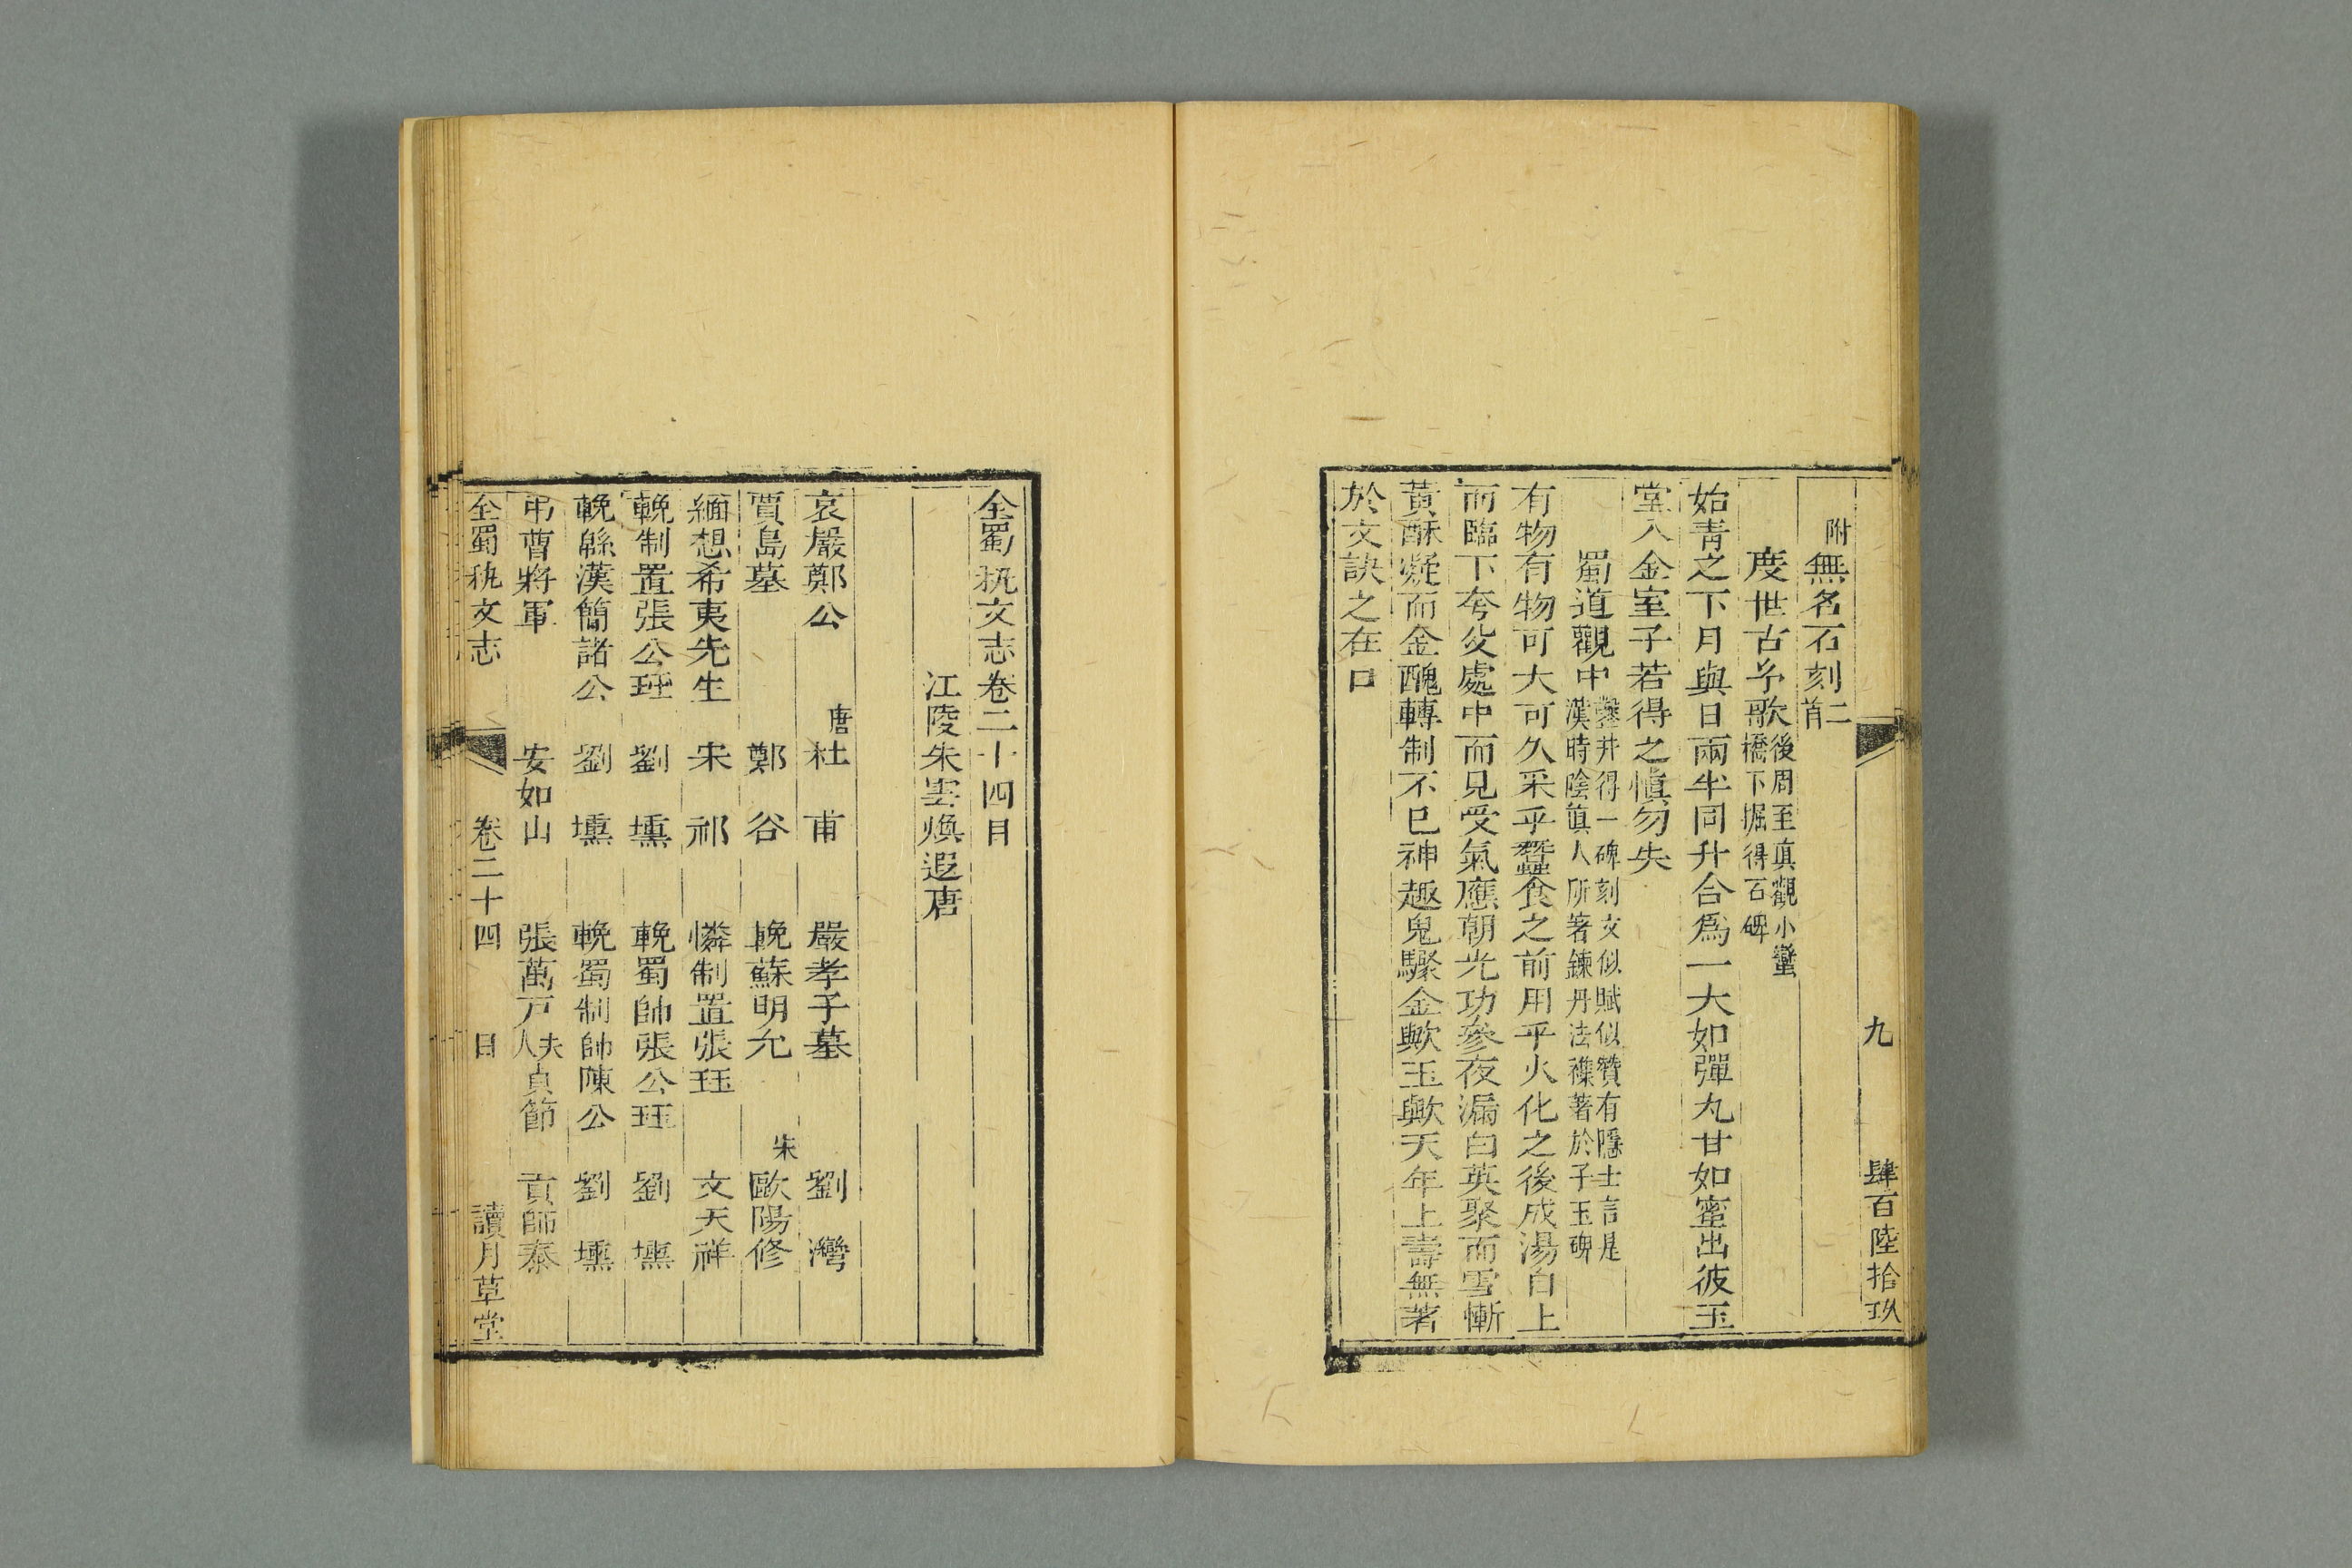 九　肆百陸拾玖
附無名石刻二首
度世古予歌後周至真觀小蠻橋下掘得石碑
始青之下月與日兩半同升合為一大如彈丸甘如蜜出彼玉
堂入金室子若得之慎勿失
蜀道觀中鑿井得一碑刻文似賦似贊有隱士言是漢時陰真人所著鍊丹法襍著於子玉碑
有物有物可大可久采乎蠶食之前用乎火化之後成湯自上
而臨下夸父處中而見受氣應朝光功參夜漏白英聚而雪慚
黃酥凝而金醜轉制不已神趣鬼驟金歟玉歟天年上壽無著
於文訣之在口
全蜀秇文志卷二十四目
江陵朱雲煥遐唐
哀嚴鄭公　唐杜甫　嚴孝子墓　劉灣
賈島墓　鄭谷　輓蘇明允　宋歐陽修
緬想希夷先生　宋祁　憐制置張珏　文天祥
輓制置張公珏　劉壎　輓蜀帥張公珏　劉壎
輓緜漢簡諸公　劉壎　輓蜀制帥陳公　劉壎
弔曹將軍　安如山　張萬戸夫人貞節　貢師泰
全蜀秇文志　卷二十四　目　讀月草堂